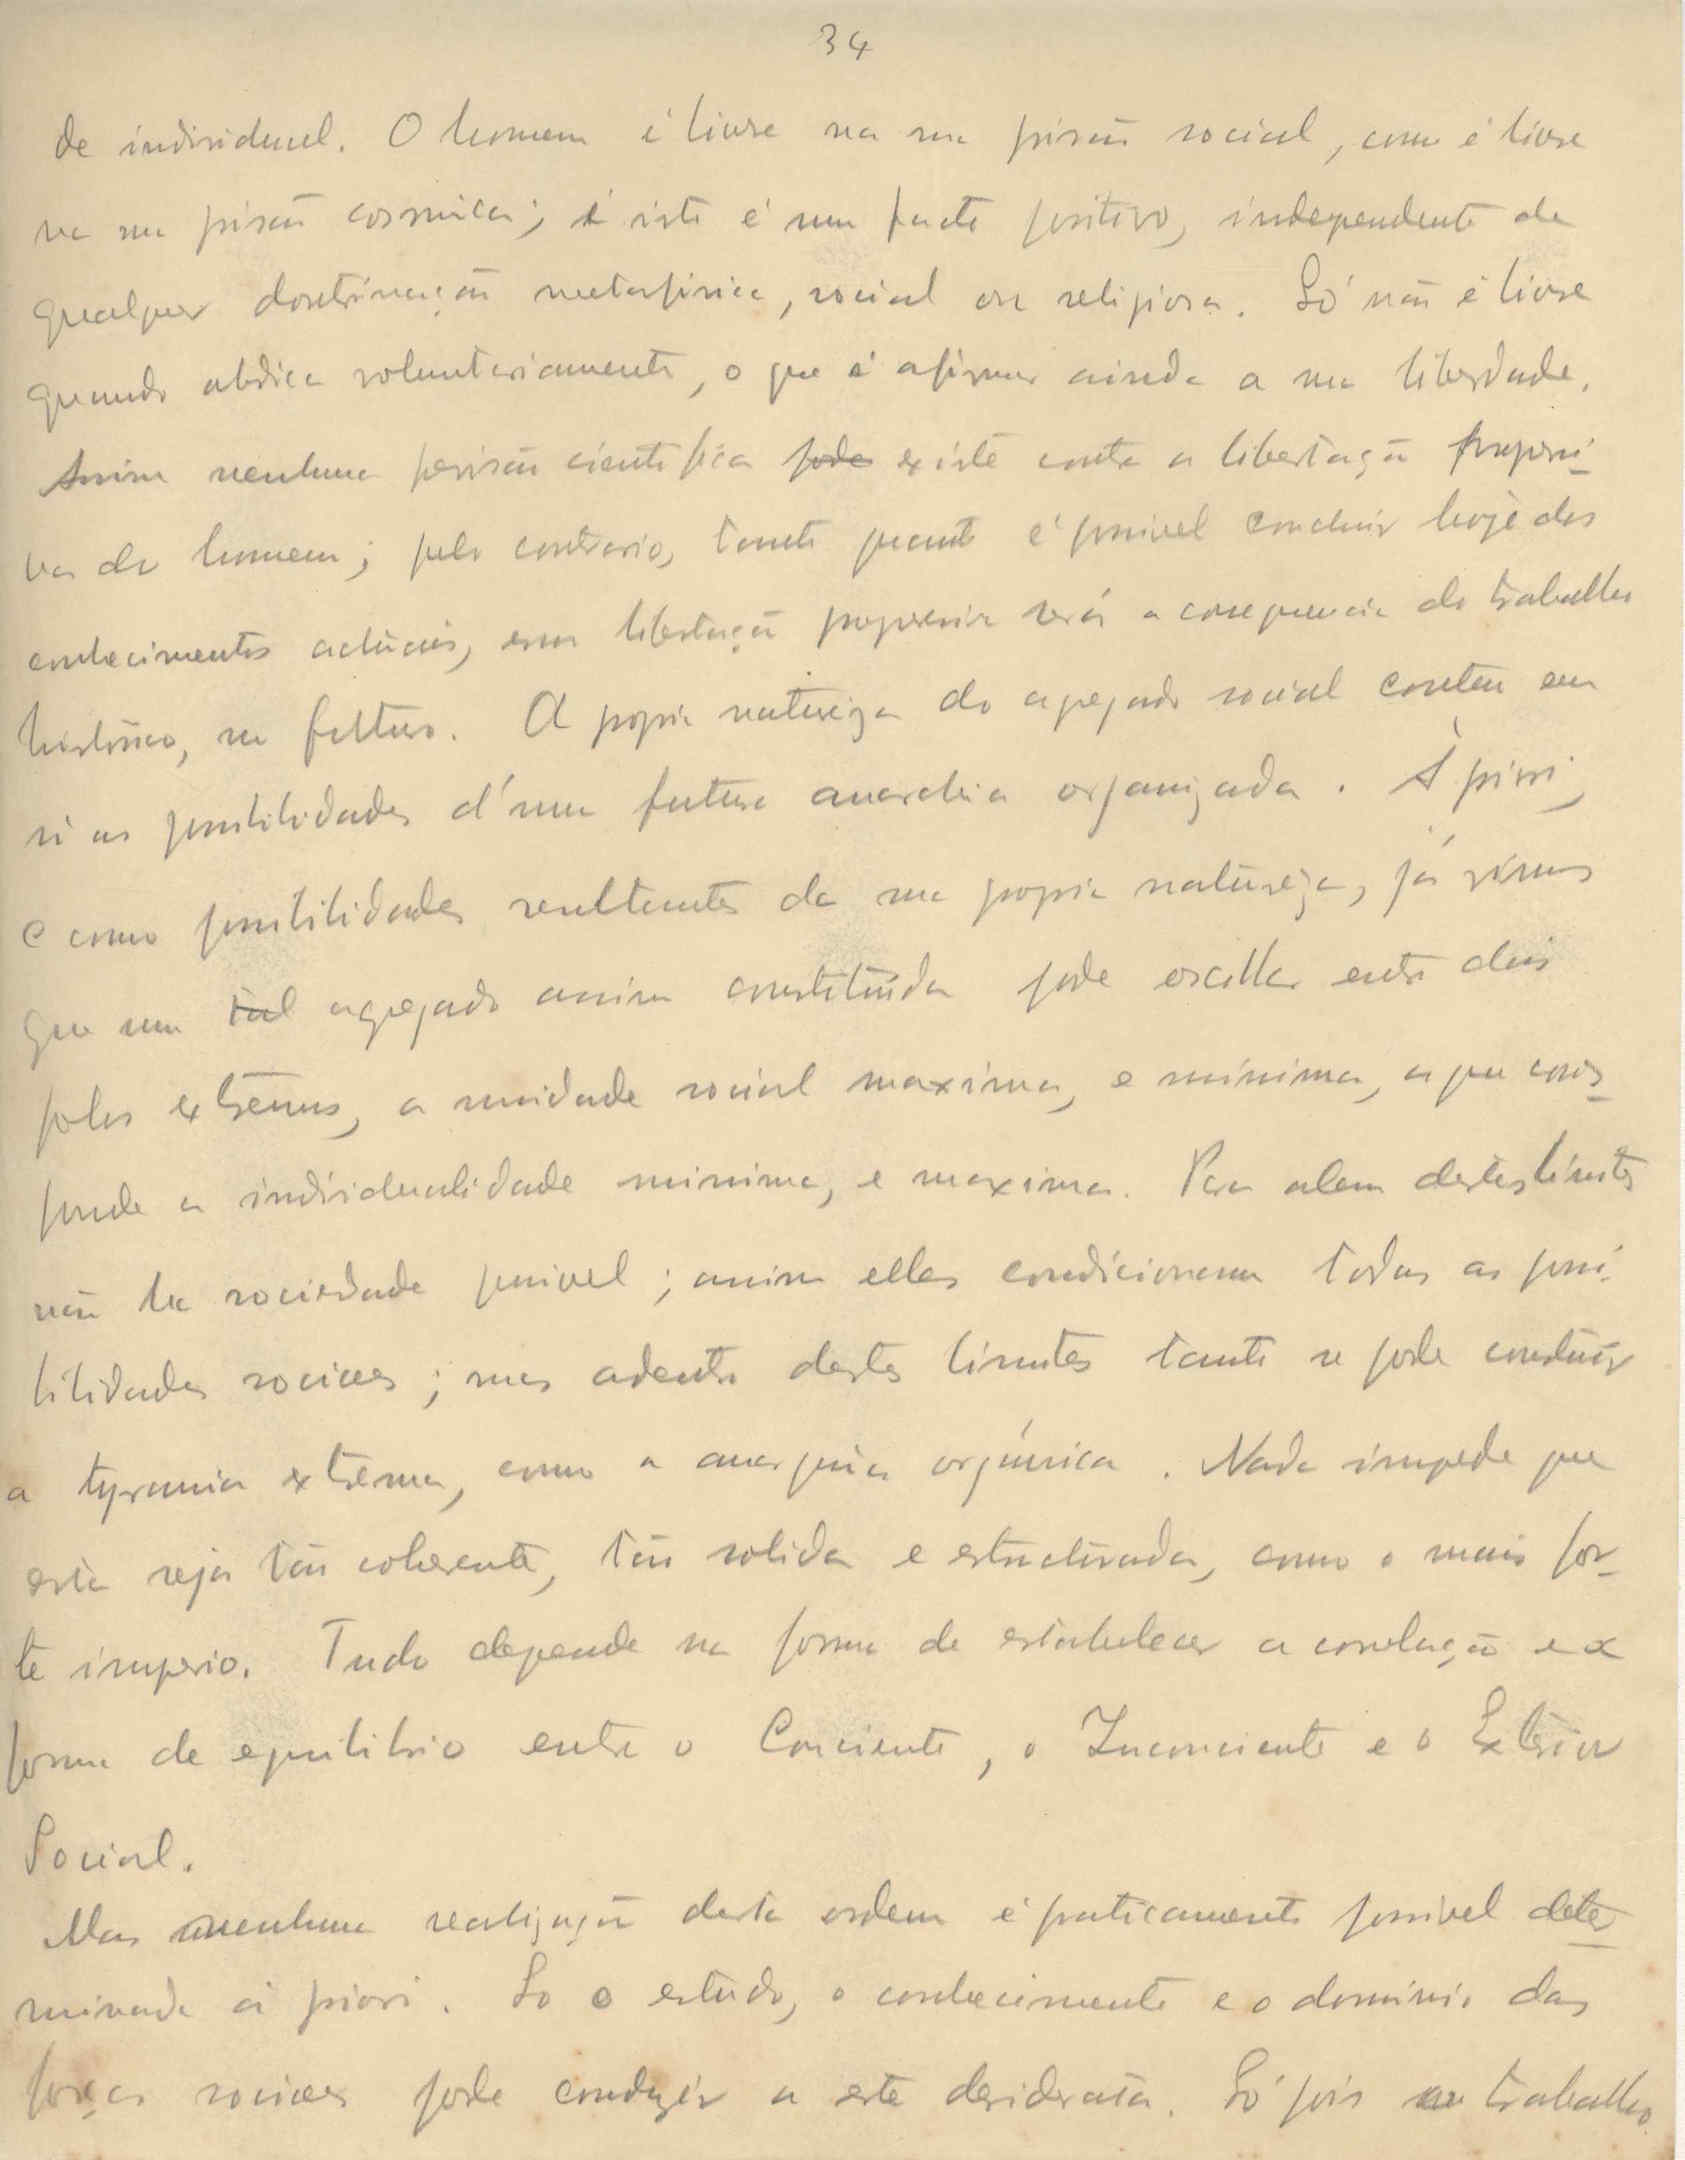 34
de individual. O homem é livre na sua prisão social, como é livre
na sua prisão cosmica; e isto é um facto positivo, independente de
qualquer doutrinação metafisica, social ou religiosa. Só não é livre
quando abdica voluntariamente, o que é afirmar ainda a sua liberdade.
Assim nenhuma previsão cientifica pode existe contra a libertação progressi-
va do homem; pelo contrario, tanto quanto é possivel concluir hoje dos
conhecimentos actuais, essa libertação progressiva será a consequencia do trabalho
historico, no futuro. A propria natureza do agregado social contém em
si as possibilidades d'uma futura anarchia organizada. À priori,
e como possibilidades resultantes da sua propria natureza, já vimos
que um tal agregado assim constituido pode oscillar entre dois
polos extremos, a unidade social maxima, e minima, a que corres-
ponde a individualidade minima, e maxima. Para alem destes limites
não ha sociedade possivel; assim elles condicionam todas as possi-
bilidades sociaes; mas adentro destes limites tanto se pode construir
a tyrannia extrema, como a anarquia orgânica. Nada impede que
esta seja tão coherente, tão solida e estructurada, como o mais for-
te imperio. Tudo depende na forma de estabelecer a correlação e a
forma de equilibrio entre o Conciente, o Inconciente e o Exterior
Social.
Mas nenhuma realização desta ordem é praticamente possivel deter-
minada à priori. Só o estudo, o conhecimento e o dominio das
forças sociaes pode conduzir a este desiderata. Só pois no trabalho